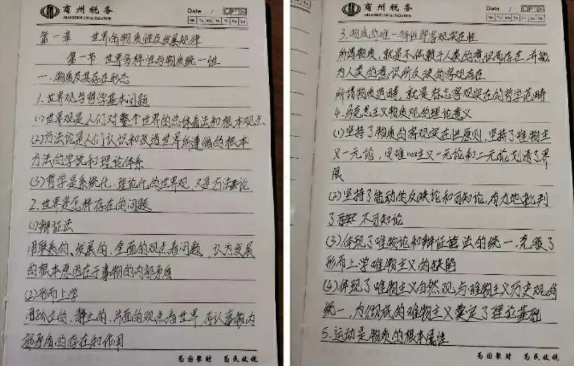 商州税务
Date
第一章 世界的物质性及发展规律
第一节 世界多样性与物质统一性
一、物质及其存在形态
1.世界观与哲学基本问题
(1)世界观是人们对整个世界的总体看法和根本观点
(2)方法论是人们认识和改造世界所遵循的根本
方法的学说和理论体系
(3)哲学是系统化、理论化的世界观,又是方法论
2.世界是怎样存在的问题
(1)辩证法
用联系的、发展的、全面的观点看问题,认为发展
的根本原因在于事物的内部矛盾
(2)形而上学
用孤立的、静止的、片面的观点看世界,否认事物内
部矛盾的存在和作用
为国聚财 为民收税
商州税务
Date
3.物质的唯一特性是客观实在性
所谓物质,就是不依赖于人类的意识而存在,并能
为人类的意识所反映的客观存在
所谓物质范畴,就是标志客观实在的哲学范畴
4.马克思主义物质观的理论意义
(1)坚持了物质的客观实在性原则,坚持了唯物主
义一元论,同唯心主义一元论和二元论划清了界
限
(2)坚持了能动的反映论和可知论,有力地批判
了不可知论
(3)体现了唯物论和辩证法的统一,克服了
形而上学唯物主义的缺陷
(4)体现了唯物主义自然观与唯物主义历史观的
统一,为彻底的唯物主义奠定了理论基础
5.运动是物质的根本属性
为国聚财 为民收税